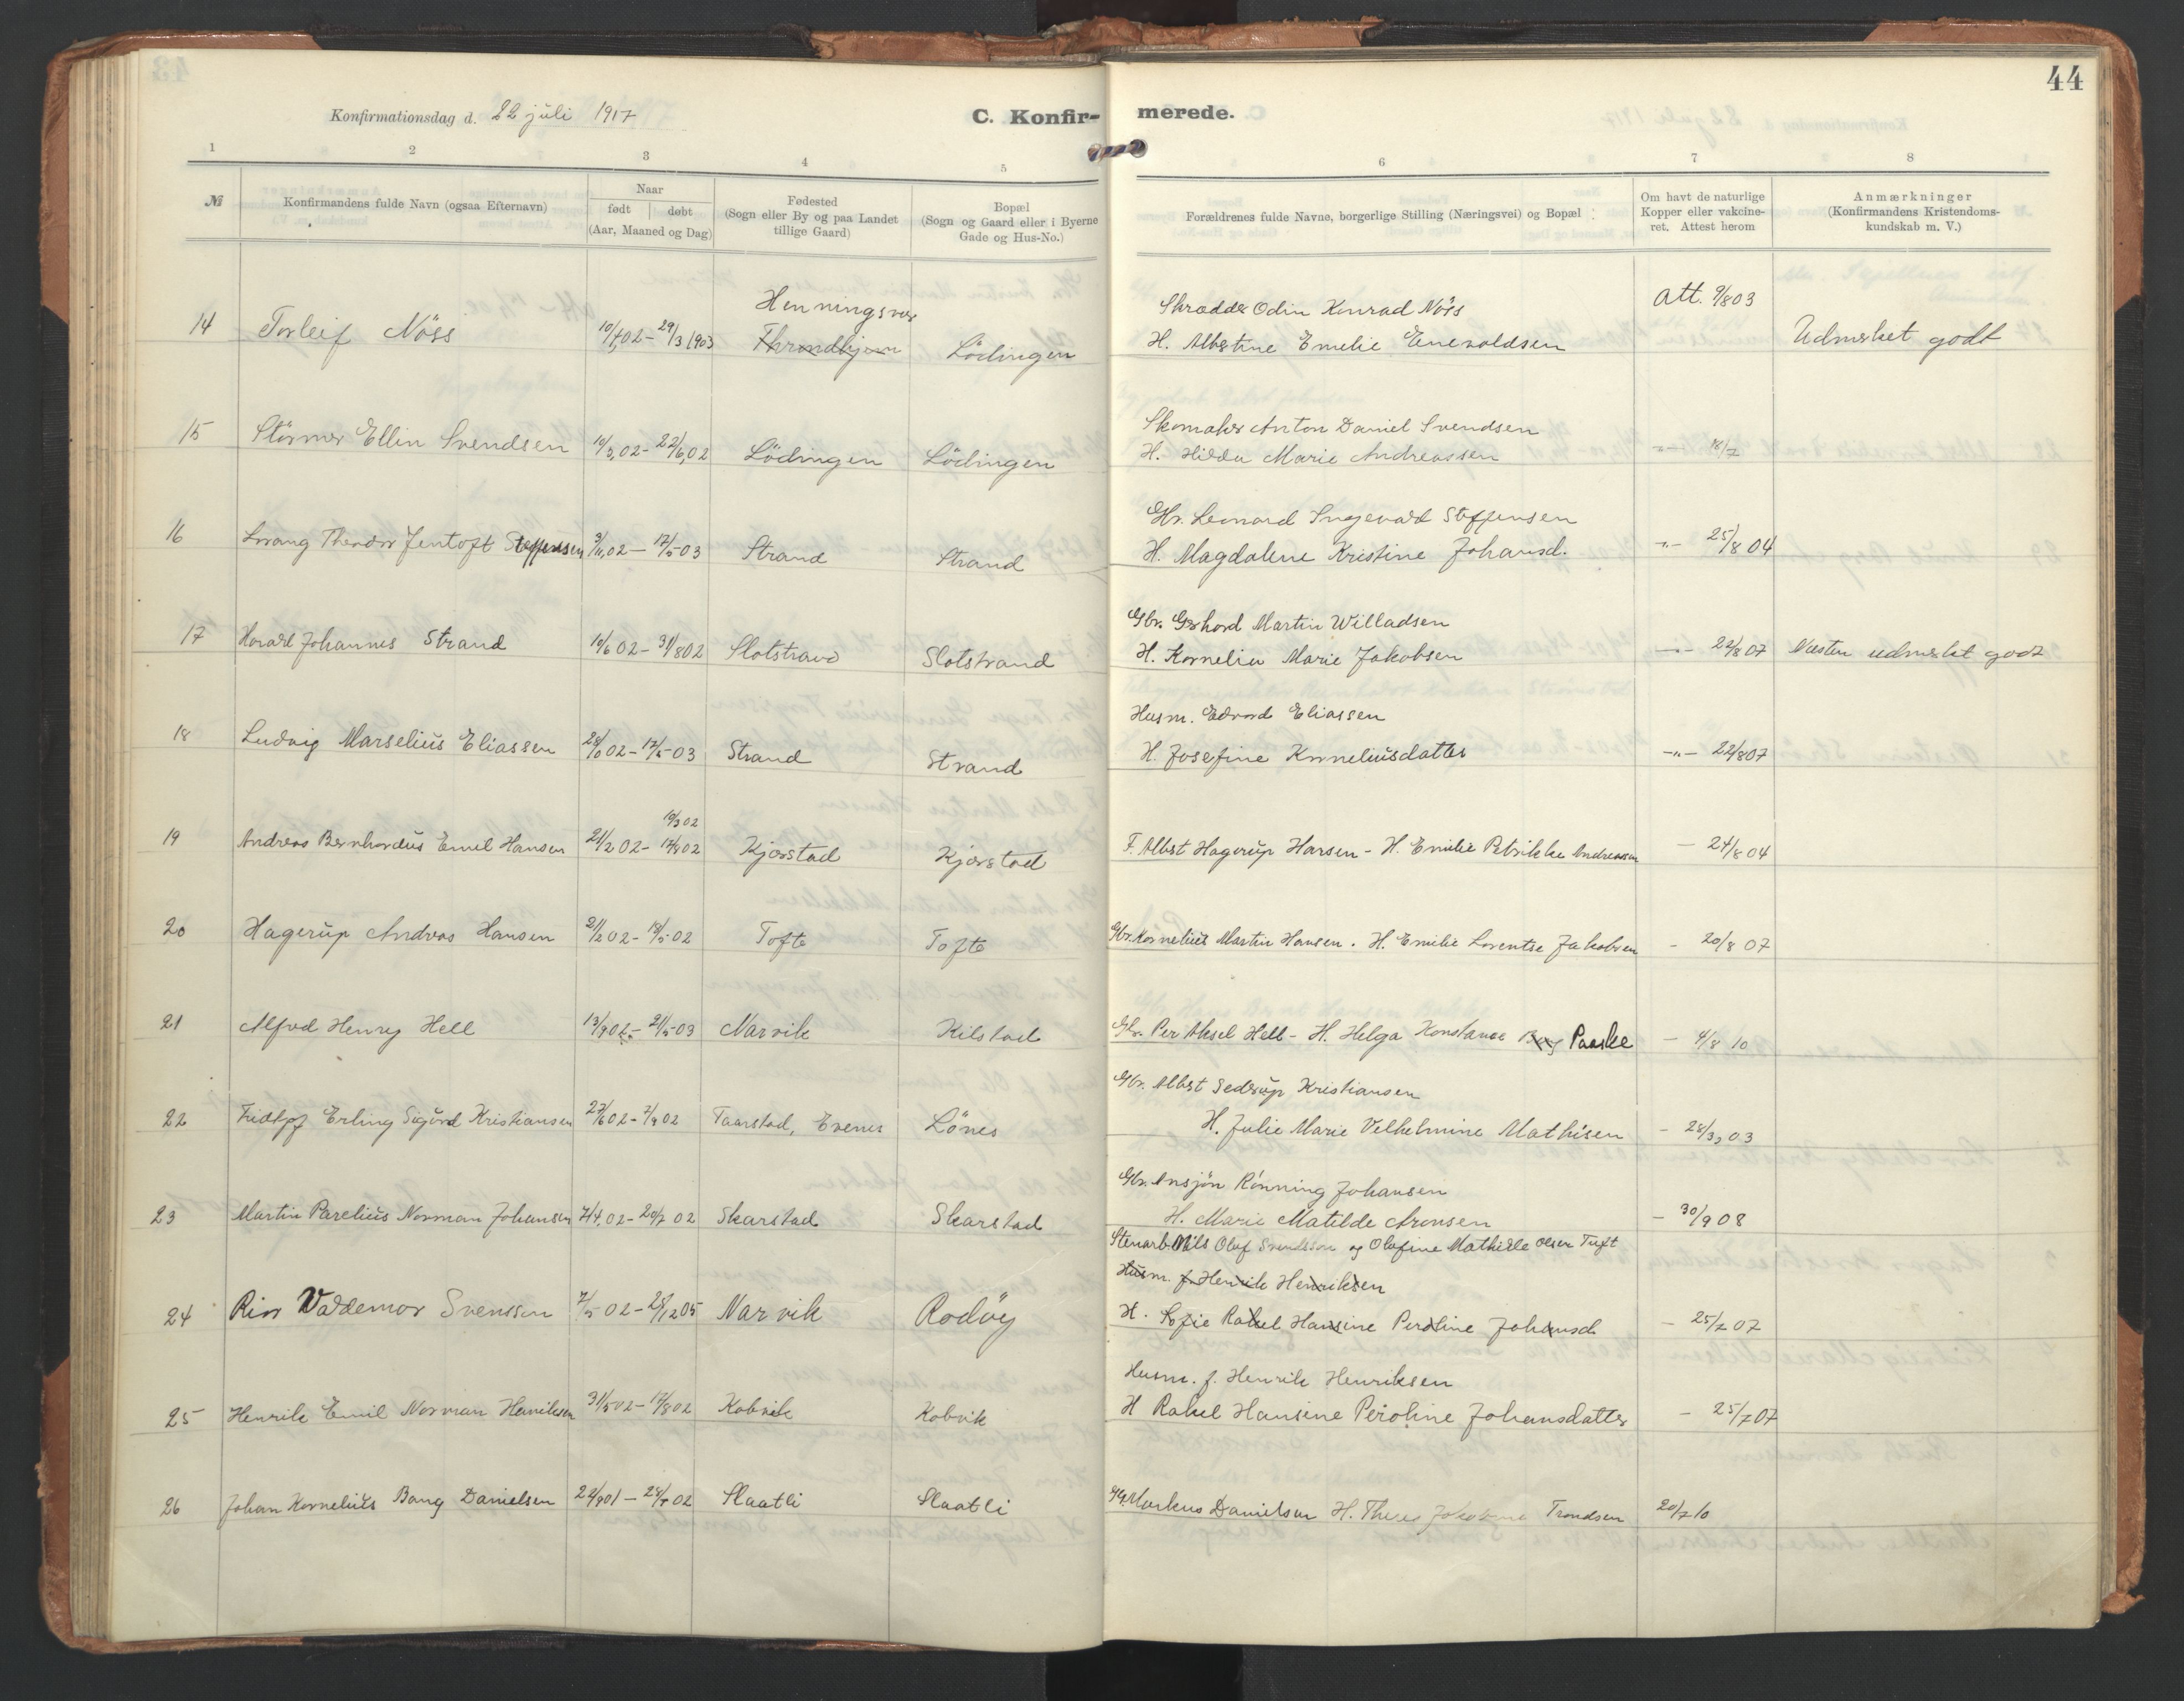 44
Konfirmationsdag d. 22 juli 1917
C. Konfirmerede.
1 2 3 4 5 6 7 8
№ Konfirmandens fulde Navn (ogsaa Efternavn) Naar født døbt (Aar, Maaned og Dag) Fødested (Sogn eller By og paa Landet tillige Gaard) Bopæl (Sogn og Gaard eller i Byerne Gade og Hus-No.) Forældrenes fulde Navne, borgerlige Stilling (Næringsvei) og Bopæl Om havt de naturlige Kopper eller vakcineret. Attest herom Anmærkninger (Konfirmandens Kristendomskundskab m. V.)
Henningsvær Skrædder Odin Konrad Nöss Att. 9/8 03
14 Torleif Nöss 29/3 1903 Throndhjem Lödingen H. Albertine Emelie Enevoldsen Udmerket godt
Skomaker Anton Daniel Svendsen
15 Störmer Ellin Svendsen 19/3,02 - 22/6,02 Lödingen Lödingen H. Hilda Marie Andreassen -"- 18/7
Gbr. Leonard Ingevald Steffensen
16 Lorang Theodor Jentoft Steffensen 3/11,02 - 17/5 03 Strand Strand H. Magdalene Kristine Johansd. -"- 25/8 04
Gbr. Gerhard Martin Willadsen
17 Harald Johannes Strand 19/6 02 - 31/8 02 Slotstrand Slotstrand H. Kornelia Marie Jakobsen -"- 22/8 07 Næsten udmerket godt
Husm. Edvard Eliassen
18 Ludvig Marselius Eliassen 02 - 17/5 03 Strand Strand H. Josefine Korneliusdatter -"- 22/8 07
19/3 02
19 Andreas Bernhardus Emil Hansen 21/2 02 - Kjærstad Kjærstad F. Albert Hagerup Hansen - H. Emilie Petrikke Andreassen - 24/8 04
20 Hagerup Andreas Hansen 21/2 02 - 18/5 02 Tofte Tofte Gbr. Kornelius Martin Hansen. H. Emilie Lorentse Jakobsen - 20/8 07
21 Alfred Henry Hell 13/9 02 - 21/5 03 Narvik Kilstad Gbr. Per Aksel Hell - H. Helga Konstanse Berg Paaske - 4/8 10
Gbr. Albert Sederup Kristiansen
22 Fridtjof Erling Sigurd Kristiansen 27/6 02 - 7/9 02 Taarstad, Evenes Lönes H. Julie Marie Velhelmine Mathisen - 28/3, 03
Gbr. Ansjön Rönning Johansen
23 Martin Parelius Norman Johansen 7/4, 02 - 20/7 02 Skarstad Skarstad H. Marie Matilde Aronsen - 30/9 08
Stenarb. Nils Olaf Svendsson og Olafine Mathilde Olsen Tuft
Husm. f. Henrik Henriksen
24 Valdemar Svenssen 7/5 02 - 28/12 05 Narvik Rodöy H. Sofie Rakel Hansine Peroline Johansd. - 25/7 07
Husm. f. Henrik Henriksen
25 Henrik Emil Norman Henriksen 31/5 02 - 17/8 02 Kobvik Kobvik H Rakel Hansine Peroline Johansdatter - 25/7 07
26 Johan Kornelius Bang Danielsen 22/9 01 - 02 Slaatli Slaatli Markus Danielsen H. Trondsen 20/7 10